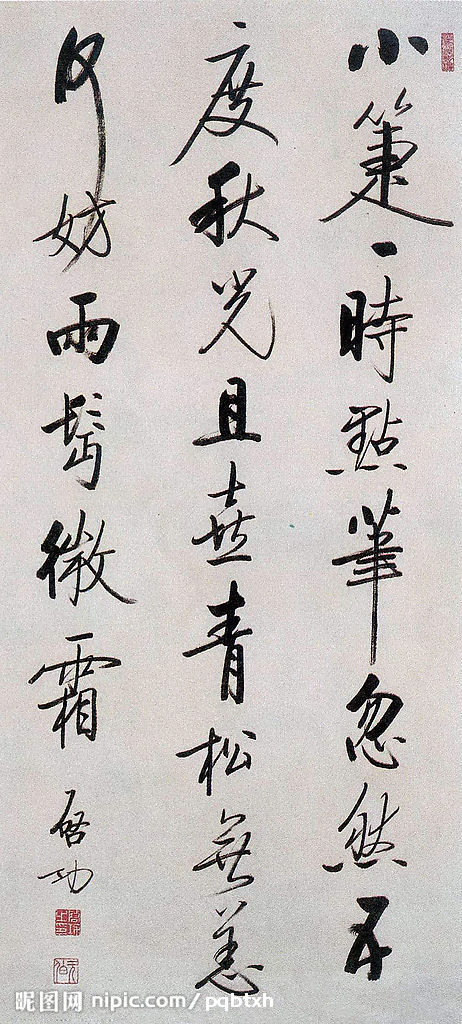 小箑一時點筆忽然五
度秋光且喜青松無恙
何妨兩鬢微霜
启功
昵图网 nipic.com/pqbtxh